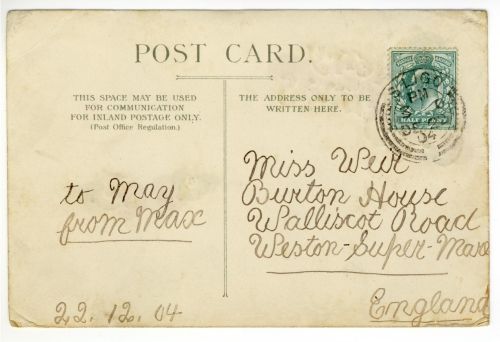 POST CARD.
THIS SPACE MAY BE USED
FOR COMMUNICATION
FOR INLAND POSTAGE ONLY.
(Post Office Regulation.)
THE ADDRESS ONLY TO BE
WRITTEN HERE.
HALF PENNY
PM
04
to May
from Max
22.12.04
Miss Weir
Burton House
Walliscot Road
Weston-Super-Mare
England